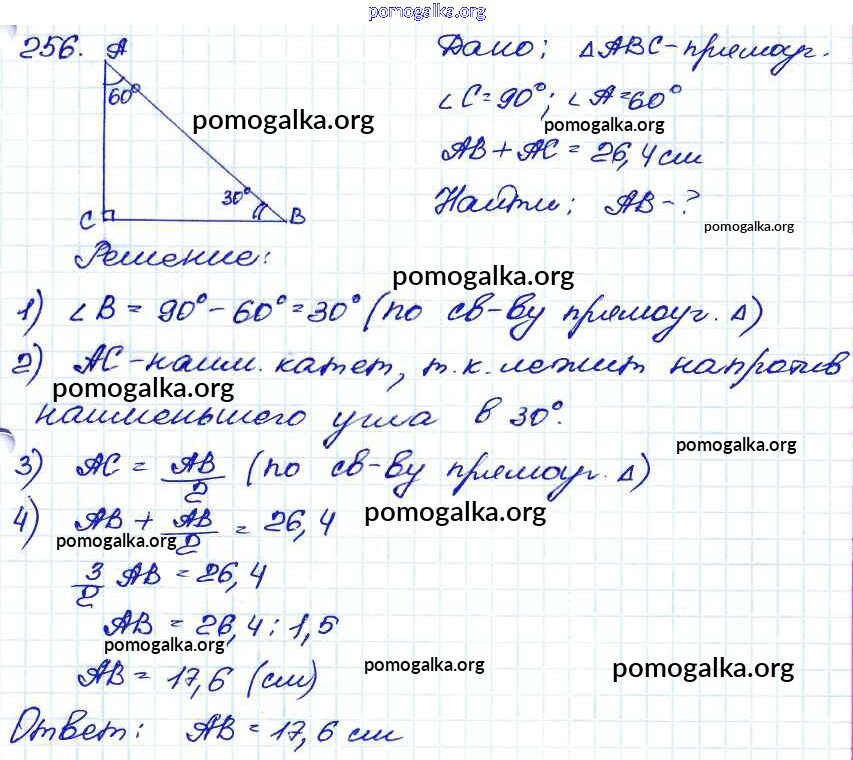 pomogalka.org
256. A
60°
30°
C B
pomogalka.org
Дано: ΔABC-прямоуг.
∠C=90°; ∠A=60°
pomogalka.org
AB+AC=26,4см
Найти: AB-?
pomogalka.org
Решение:
pomogalka.org
1) ∠B=90°-60°=30° (по св-ву прямоуг. Δ)
2) AC-наим. катет, т.к. лежит напротив
pomogalka.org
наименьшего угла в 30°.
pomogalka.org
3) AC = AB/2 (по св-ву прямоуг. Δ)
4) AB + AB/2 = 26,4
pomogalka.org
pomogalka.org
3/2 AB = 26,4
AB = 26,4 : 1,5
pomogalka.org
AB = 17,6 (см)
pomogalka.org
pomogalka.org
Ответ: AB = 17,6 см